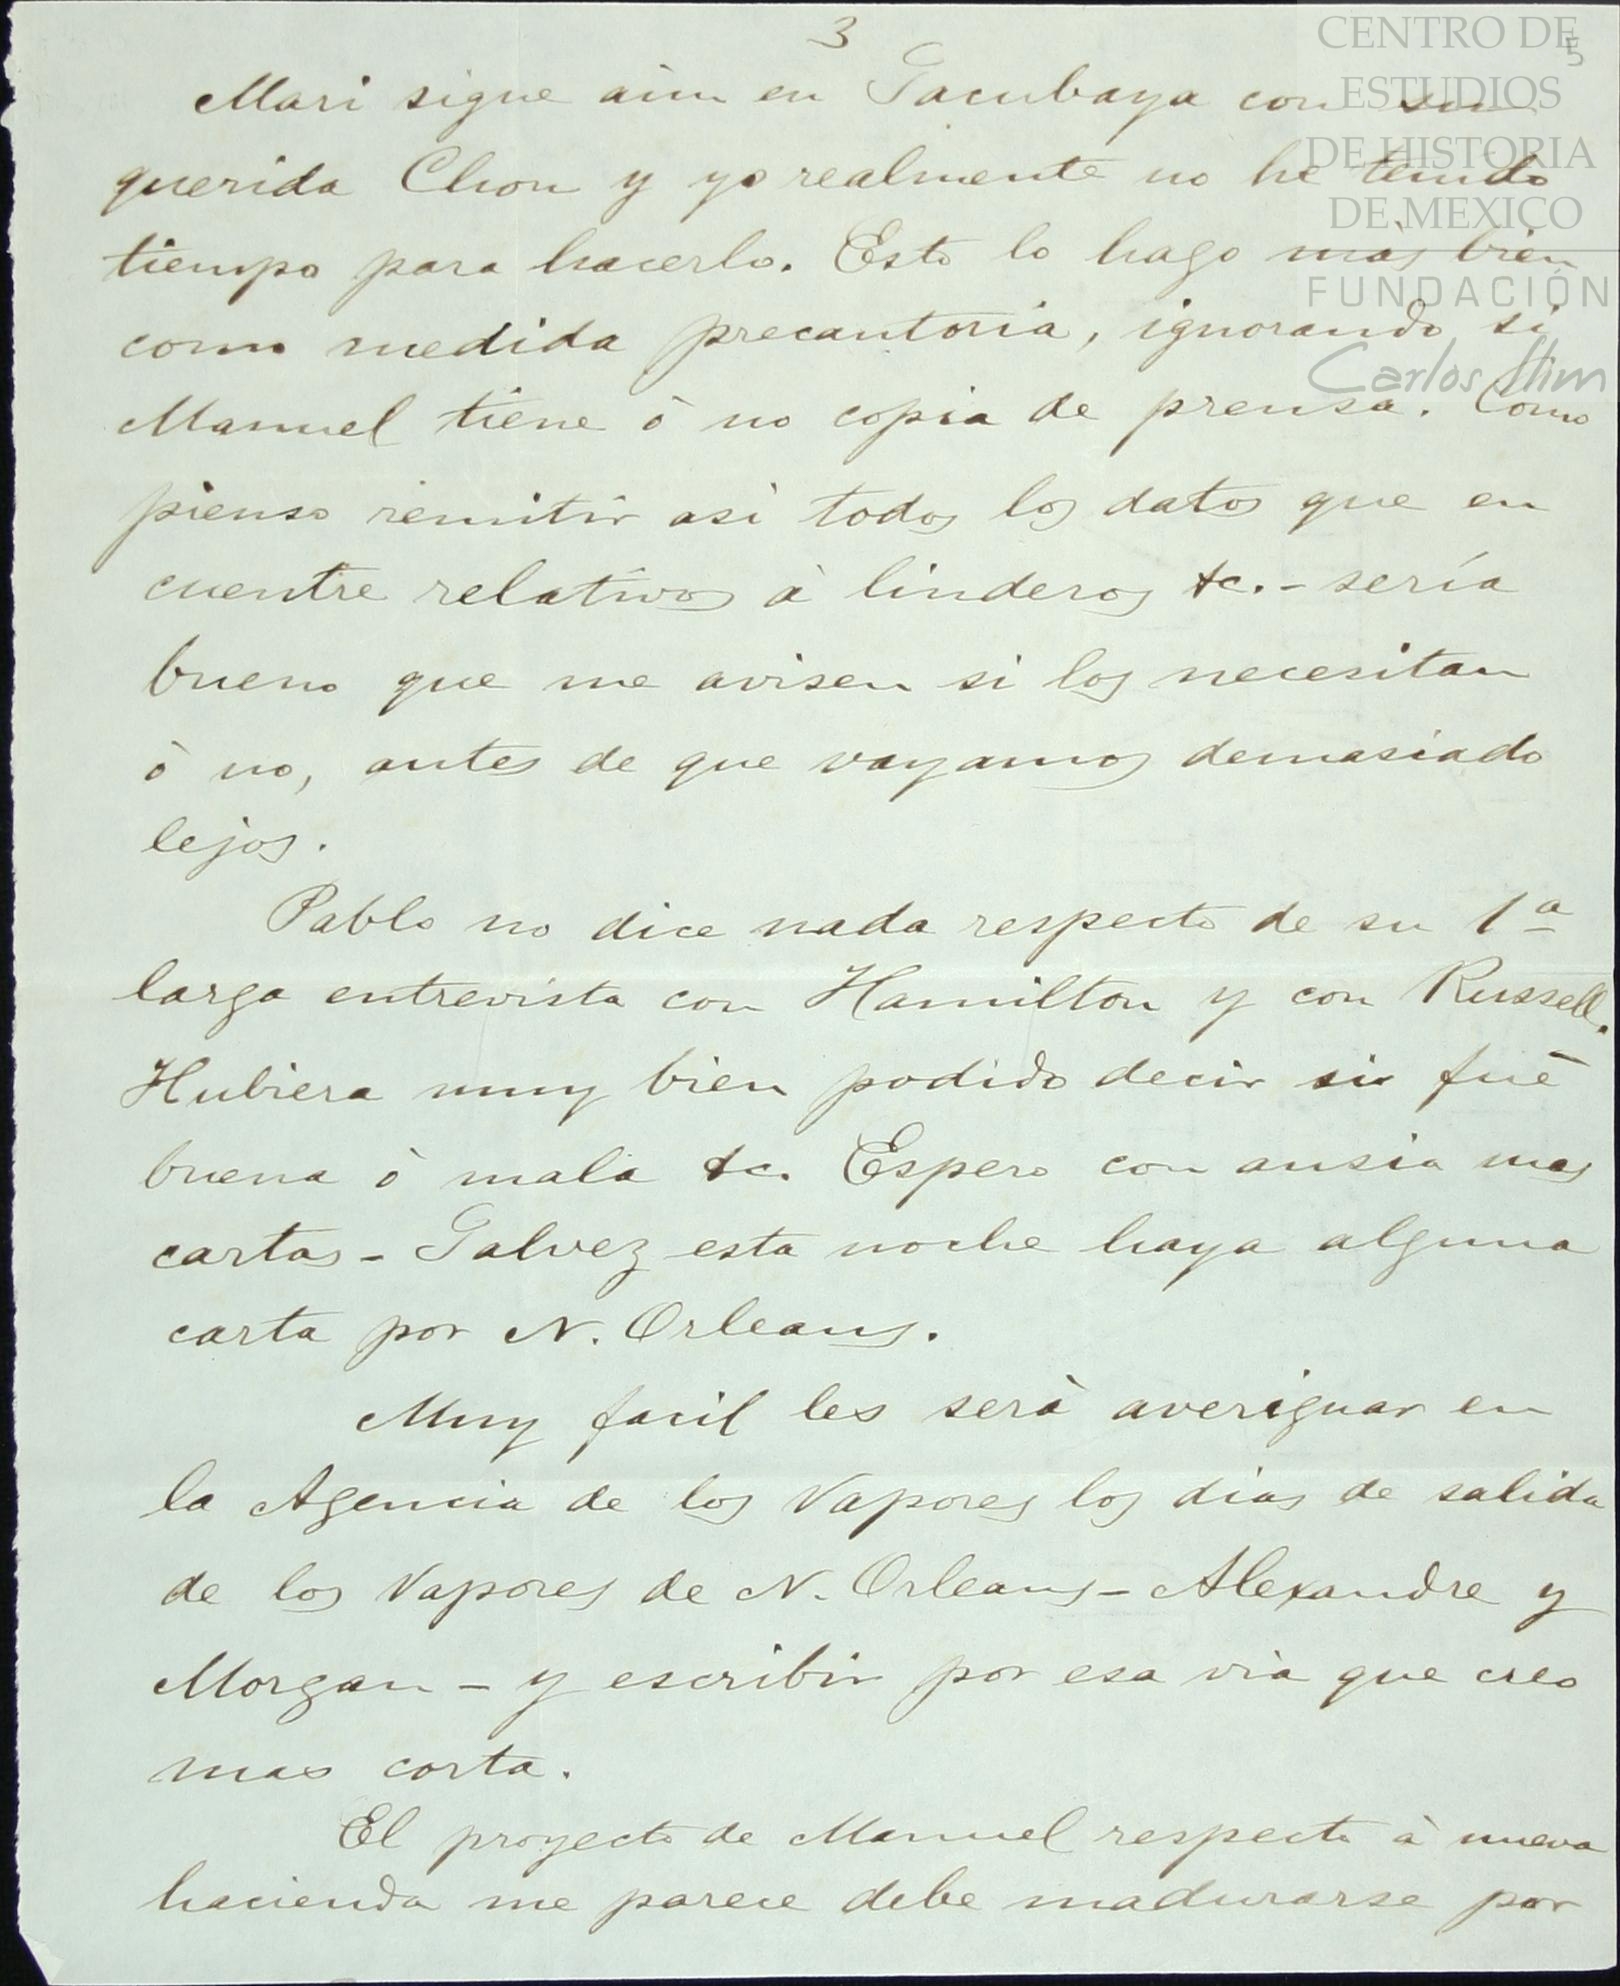 3
5
CENTRO DE
ESTUDIOS
DE HISTORIA
DE MEXICO
FUNDACIÓN
Carlos Slim
Mari sigue aùn en Tacubaya con su
querida Chon y yo realmente no he tenido
tiempo para hacerlo. Esto lo hago màs bien
como medida precautoria, ignorando si
Manuel tiene ò no copia de prensa. Como
pienso remitir asi todos los datos que en
cuentre relativos à linderos &c. - sería
bueno que me avisen si los necesitan
ò no, antes de que vayamos demasiado
lejos.
Pablo no dice nada respecto de su 1ª
larga entrevista con Hamilton y con Russell.
Hubiera muy bien podido decir si fuè
buena ò mala &c. Espero con ansia mas
cartas - Talvez esta noche haya alguna
carta por N. Orleans.
Muy facil les serà averiguar en
la Agencia de los Vapores los dias de salida
de los Vapores de N. Orleans - Alexandre y
Morgan - y escribir por esa via que creo
mas corta.
El proyecto de Manuel respecto à nueva
hacienda me parece debe madurarse por